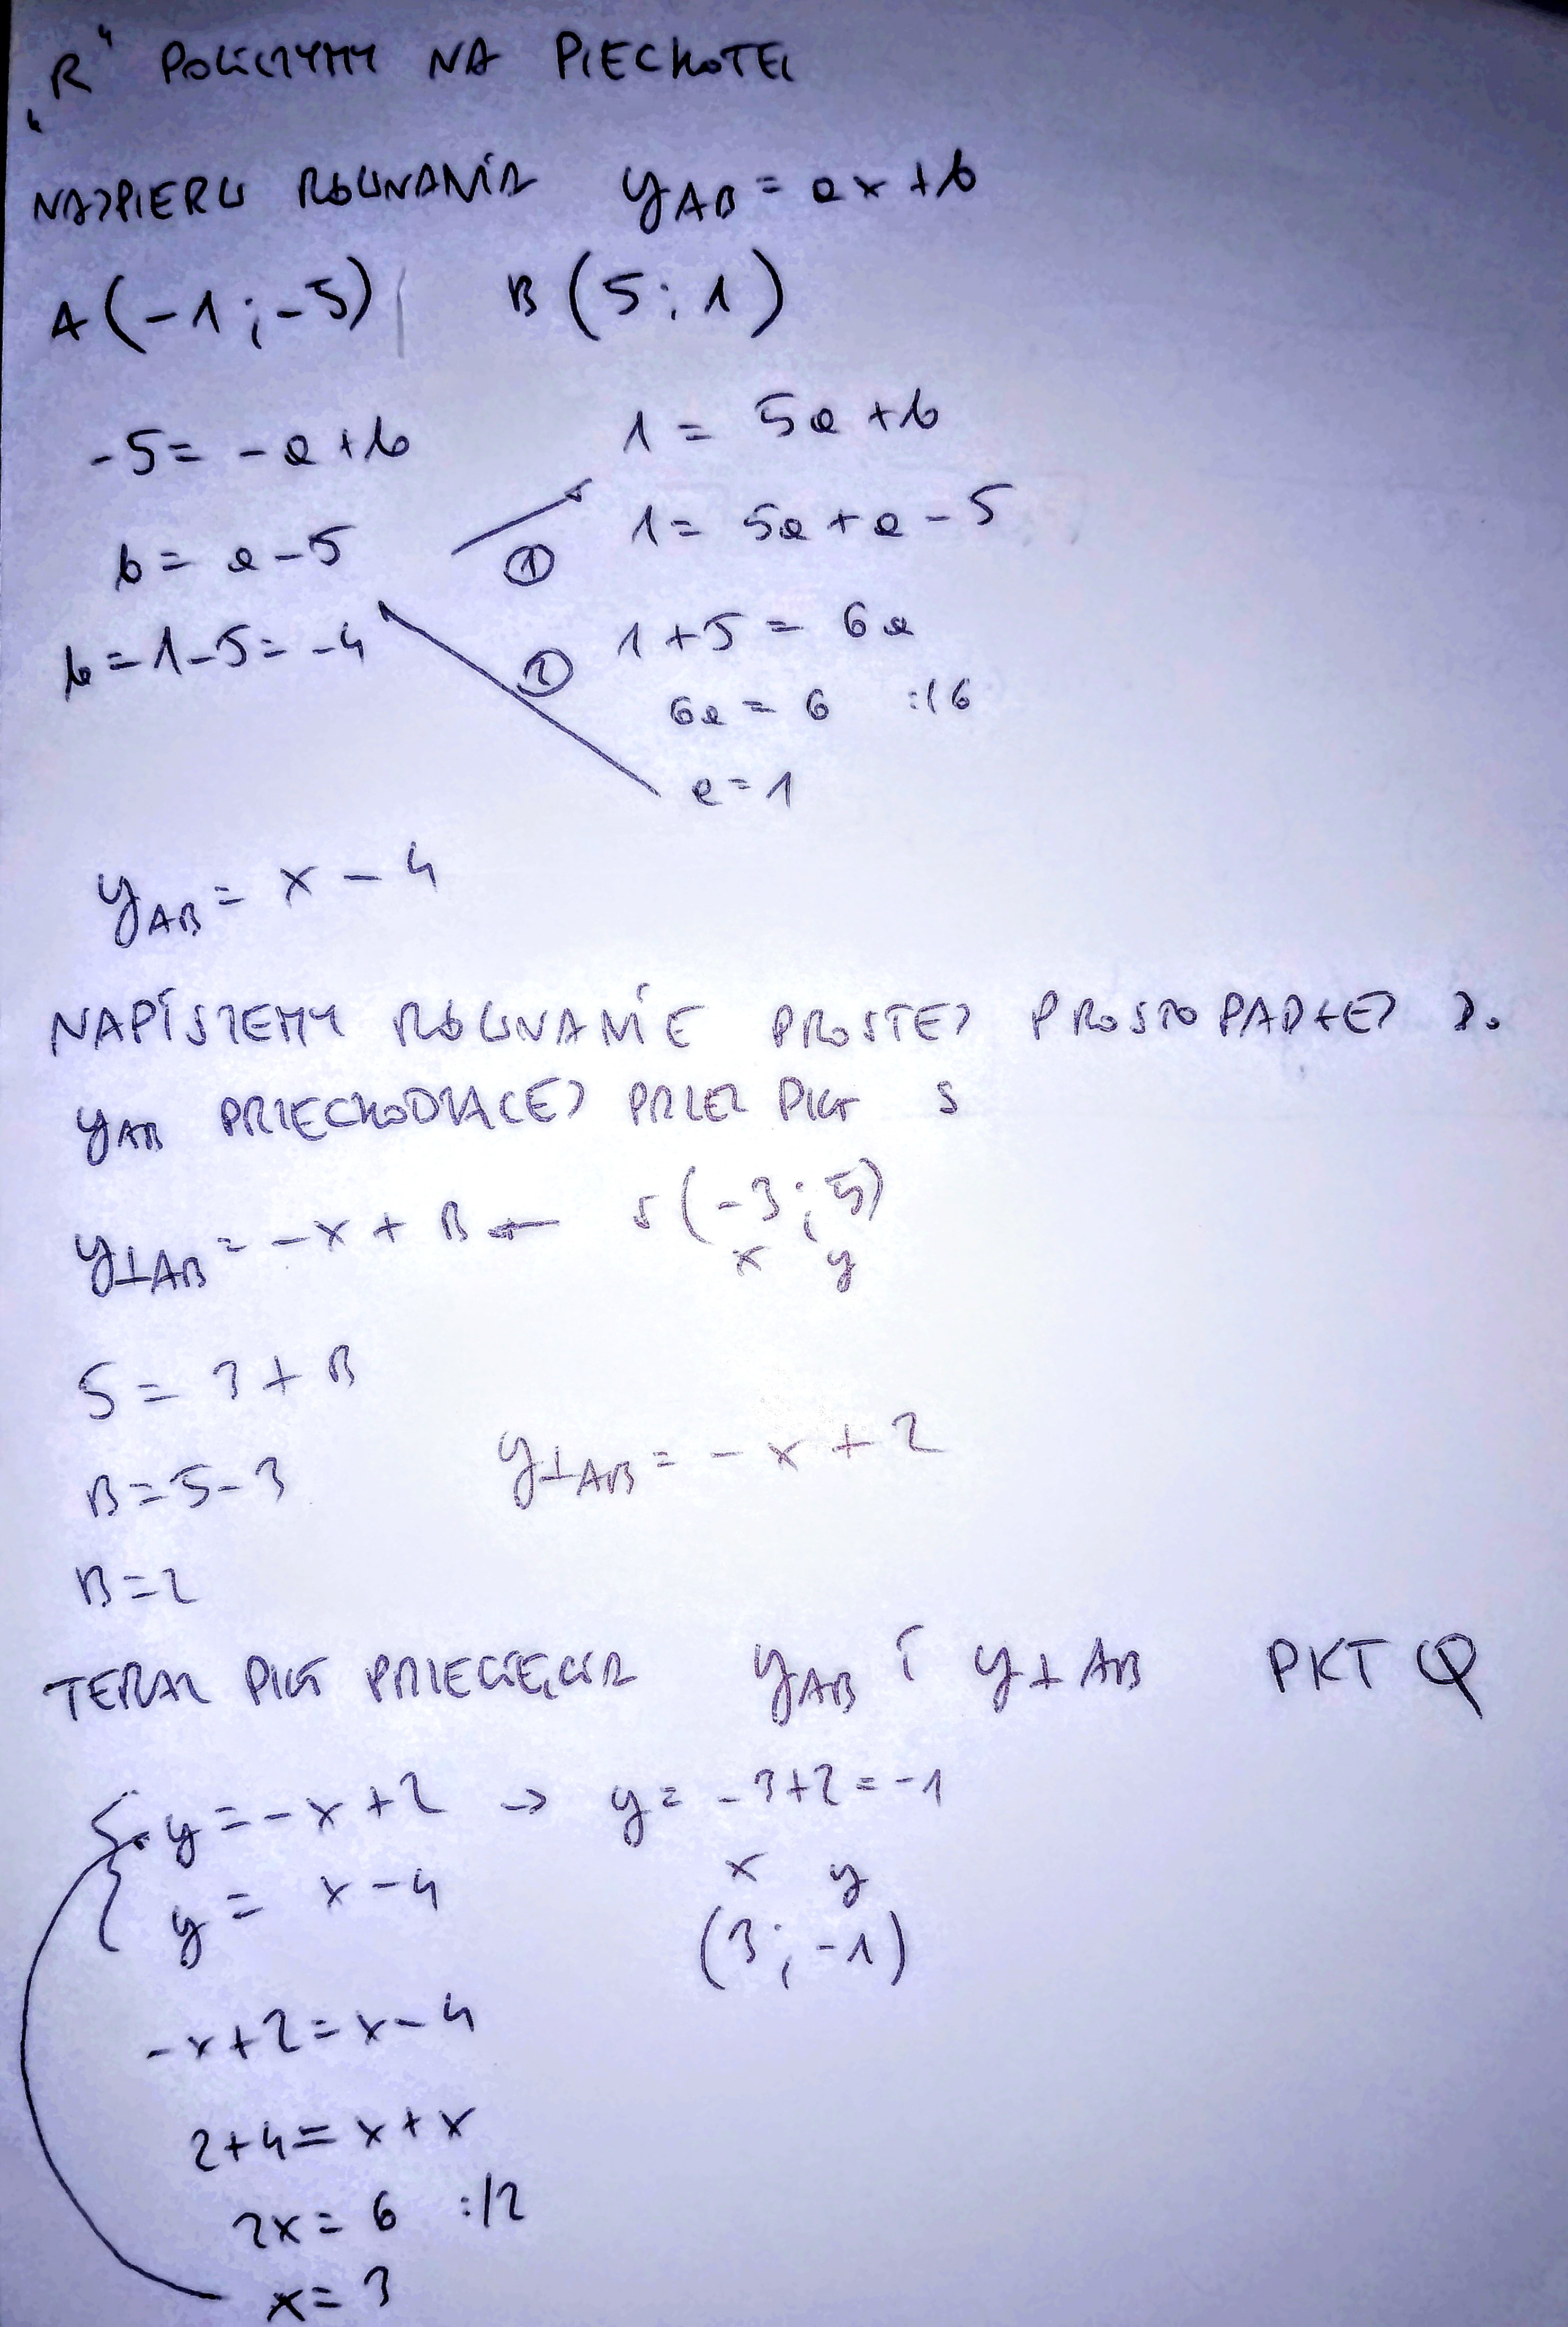 „R" POLICZYMY NA PIECHOTĘ
NAJPIERW RÓWNANIA y_AB = ax + b
A(-1; -5) B(5; 1)
-5 = -a + b 1 = 5a + b
b = a - 5 ① 1 = 5a + a - 5
b = 1 - 5 = -4 ② 1 + 5 = 6a
6a = 6 :/6
a = 1
y_AB = x - 4
NAPISZEMY RÓWNANIE PROSTEJ PROSTOPADŁEJ DO
y_AB PRZECHODZĄCEJ PRZEZ PKT S
y_⊥AB = -x + B ← S(-3; 5)
x y
5 = 3 + B
B = 5 - 3 y_⊥AB = -x + 2
B = 2
TERAZ PKT PRZECIĘCIA y_AB i y_⊥AB PKT Q
{ y = -x + 2 → y = -3 + 2 = -1
y = x - 4 x y
(3; -1)
-x + 2 = x - 4
2 + 4 = x + x
2x = 6 :/2
x = 3